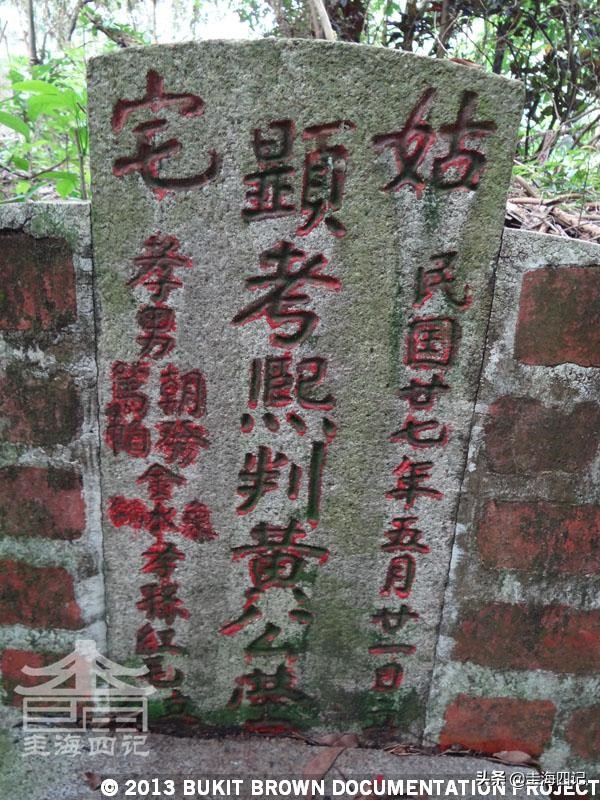 姑
民国廿七年五月廿一日
顯考熙判黃公墓
宅
孝男
朝發
篤柏
金水
泉
孝孫紅毛立
圭海四记
头条 @圭海四记
© 2013 BUKIT BROWN DOCUMENTATION PROJECT